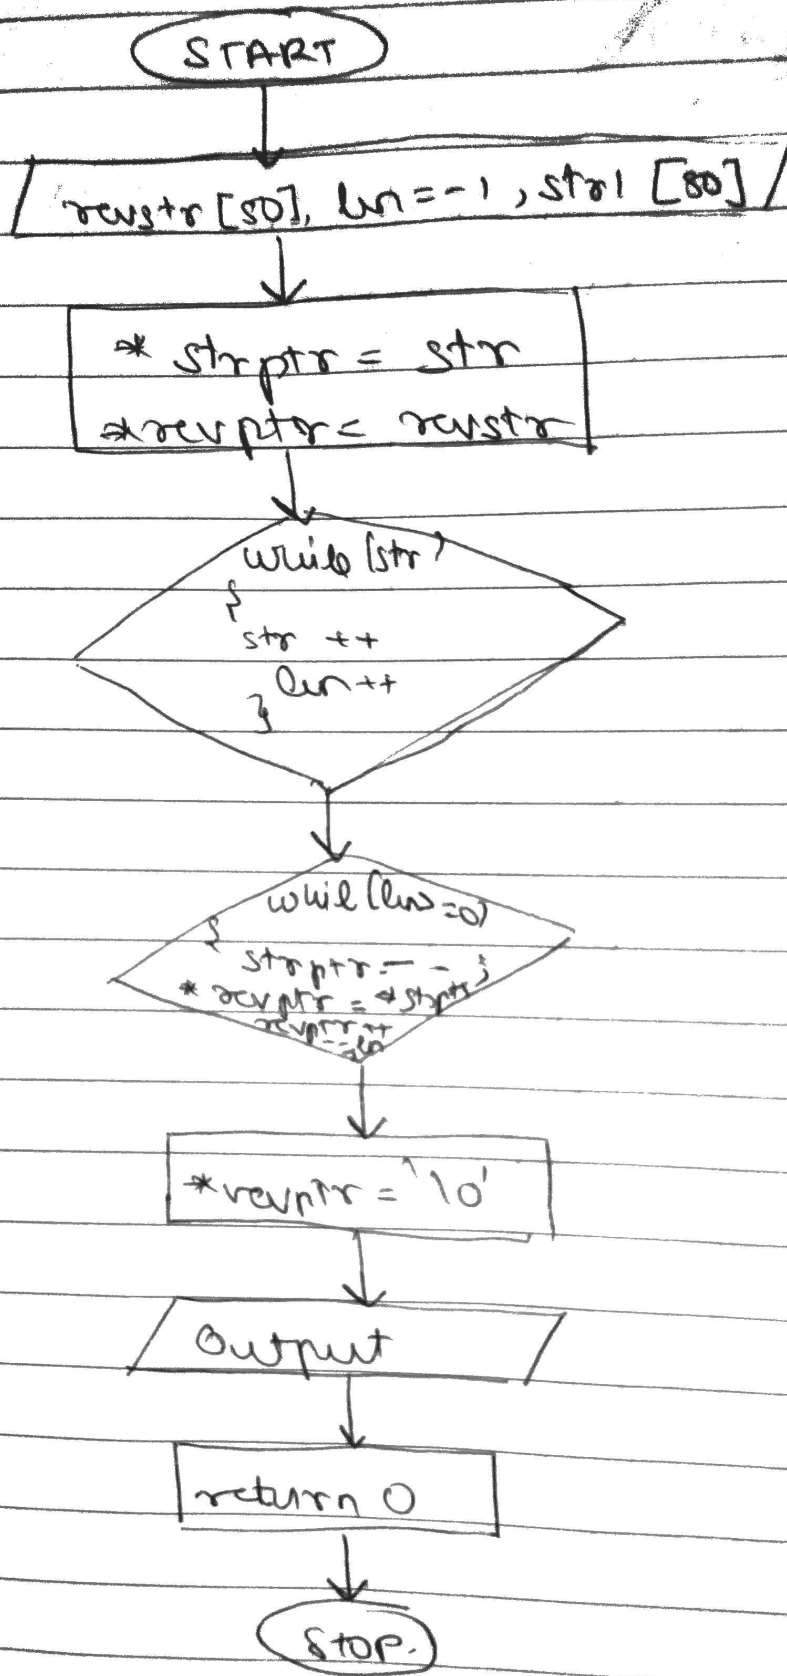 START
revstr [50], len = -1, str1 [80]
* strptr = str
*revptr = revstr
while (str)
{
str ++
len ++
}
while (len >=0)
{
strptr - - ;
* revptr = *strptr ;
revptr ++
--len
*revptr = '\0'
Output
return 0
STOP.